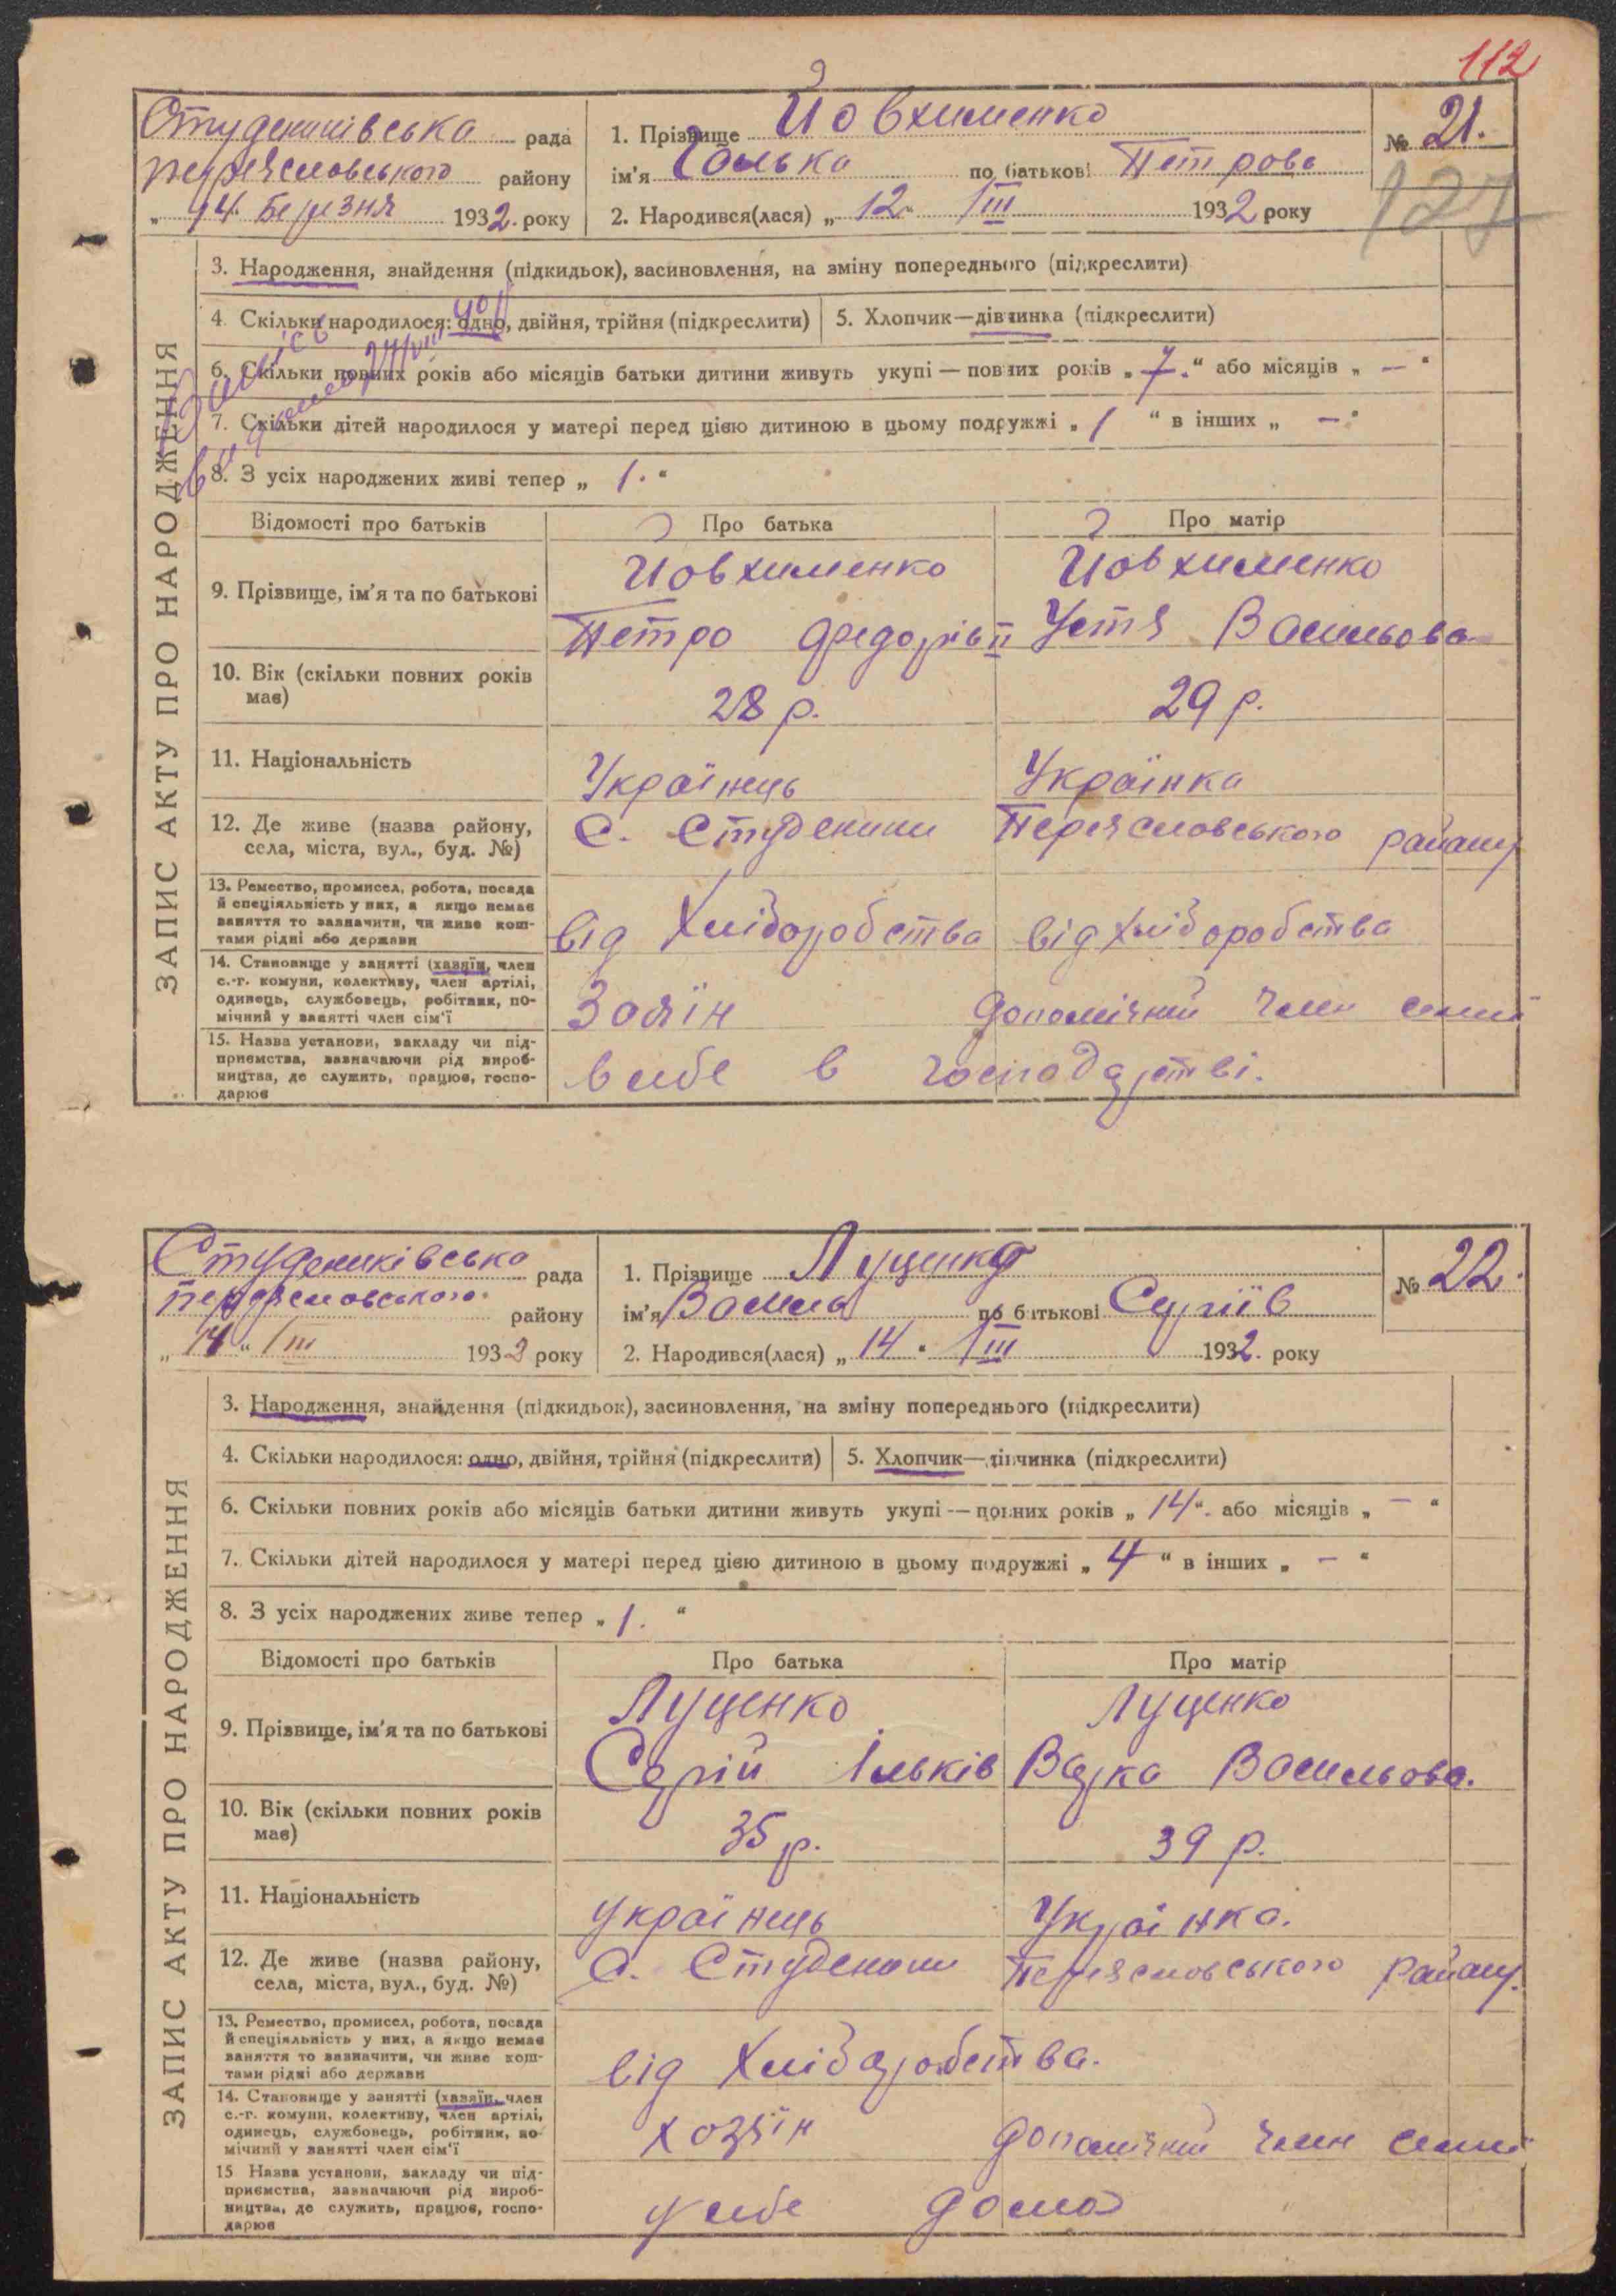 112
Студениківська рада
Переяславського району
„ 14. Березня 1932. року
1. Прізвище Йовхименко
ім'я Галька по батькові Петрова
2. Народився(лася) „ 12 " / III 1932 року
№ 21.
127
ЗАПИС АКТУ ПРО НАРОДЖЕННЯ
3. Народження, знайдення (підкидьок), засиновлення, на зміну попереднього (підкреслити)
4. Скільки народилося: одно, двійня, трійня (підкреслити)
5. Хлопчик—дівчинка (підкреслити)
6. Скільки повних років або місяців батьки дитини живуть укупі — повних років „ 7. “ або місяців „ — “
7. Скільки дітей народилося у матері перед цією дитиною в цьому подружжі „ 1 “ в інших „ — “
8. З усіх народжених живі тепер „ 1. “
Відомості про батьків Про батька Про матір
9. Прізвище, ім'я та по батькові
Йовхименко Йовхименко
Петро Федорів Устя Васильова
10. Вік (скільки повних років
має)
28 р. 29 р.
11. Національність
Українець Українка
12. Де живе (назва району,
села, міста, вул., буд. №)
С. Студеники Переяславського району
13. Ремество, промисел, робота, посада
й спеціяльність у них, а якщо немає
заняття то зазначити, чи живе кош-
тами рідні або держави
від Хліборобства від хліборобства
14. Становище у занятті (хазяїн, член
с.-г. комуни, колективу, член артілі,
одинець, службовець, робітник, по-
мічний у занятті член сім'ї
допомічний член семьї
15. Назва установи, закладу чи під-
приємства, зазначаючи рід вироб-
ництва, де служить, працює, госпо-
дарює
в себе в господарстві.
Студениківська рада
Переяславського району
„ 14 “ / III 1932 року
1. Прізвище Луценко
ім'я Василь по батькові Сергіїв
2. Народився(лася) „ 14 " / III 1932. року
№ 22.
ЗАПИС АКТУ ПРО НАРОДЖЕННЯ
3. Народження, знайдення (підкидьок), засиновлення, на зміну попереднього (підкреслити)
4. Скільки народилося: одно, двійня, трійня (підкреслити)
5. Хлопчик—дівчинка (підкреслити)
6. Скільки повних років або місяців батьки дитини живуть укупі — повних років „ 14 “. або місяців „ — “
7. Скільки дітей народилося у матері перед цією дитиною в цьому подружжі „ 4 “ в інших „ — “
8. З усіх народжених живе тепер „ 1. “
Відомості про батьків Про батька Про матір
9. Прізвище, ім'я та по батькові
Луценко Луценко
Сергій Ільків Варка Васильова.
10. Вік (скільки повних років
має)
35 р. 39 р.
11. Національність
українець Українка.
12. Де живе (назва району,
села, міста, вул., буд. №)
С. Студеники Переяславського району.
13. Ремество, промисел, робота, посада
й спеціяльність у них, а якщо немає
заняття то зазначити, чи живе кош-
тами рідні або держави
від Хліборобства.
14. Становище у занятті (хазяїн, член
с.-г. комуни, колективу, член артілі,
одинець, службовець, робітник, по-
мічний у занятті член сім'ї
хозяїн допомічний член семьї
15 Назва установи, закладу чи під-
приємства, зазначаючи рід вироб-
ництва, де служить, працює, госпо-
дарює
у себе дома